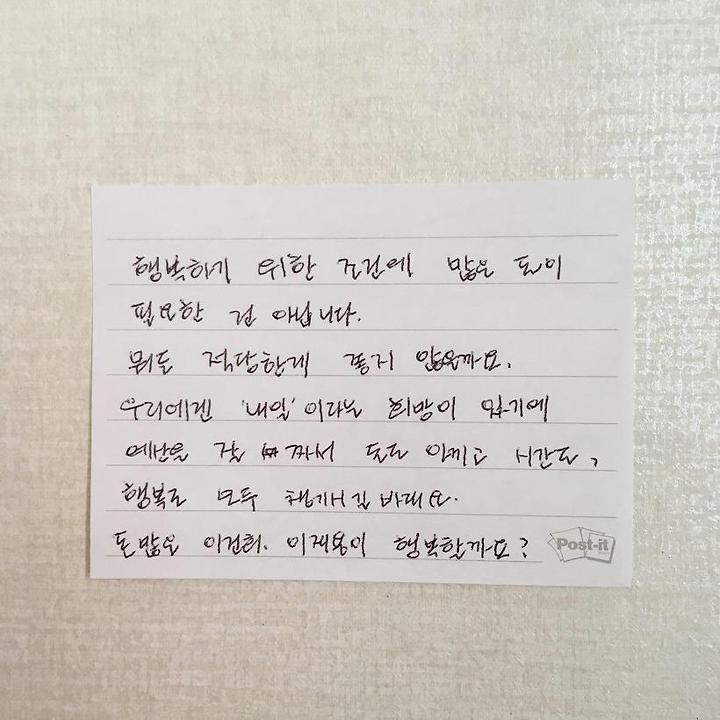 행복하기 위한 조건에 많은 돈이
필요한 건 아닙니다.
뭐든 적당한게 좋지 않을까요.
우리에겐 '내일'이라는 희망이 있기에
예산을 잘 짜서 돈도 아끼고 시간도,
행복도 모두 챙기시길 바래요.
돈 많은 이건희. 이재용이 행복할까요?
Post-it